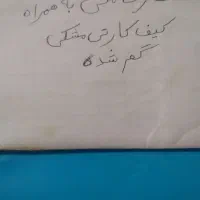 به همراه
کیف کارتی مشکی
گم شده